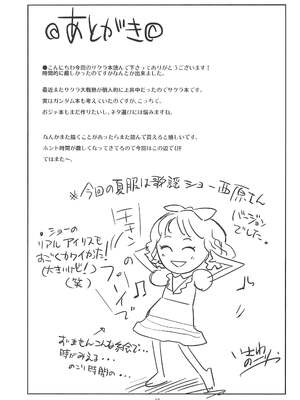 @あとがき@
●こんにちわ今回のサクラ本読んで下さってありがとうございます!
時間的に厳しかったのですがなんとか出来ました。
最近またサクラ大戦熱が個人的に上昇中だったのでサクラ本です。
実はガンダム本も考えていたのですが、こっちで。
ポジャ本もまた作りたいし、ネタ選びには悩みますね。
なんかまた描くことがあったらまた読んで貰えると嬉しいです。
ホント時間が厳しくなってきてるので今回はこの辺で(汗
ではまた~、
※今回の夏服は歌謡ショー西原さん
バージョンでした。
・ショーの
リアルアイリスも
すごくカワイかた!
(大きいけど!)
(笑)
時がみえる・・・
のこり時間の・・・